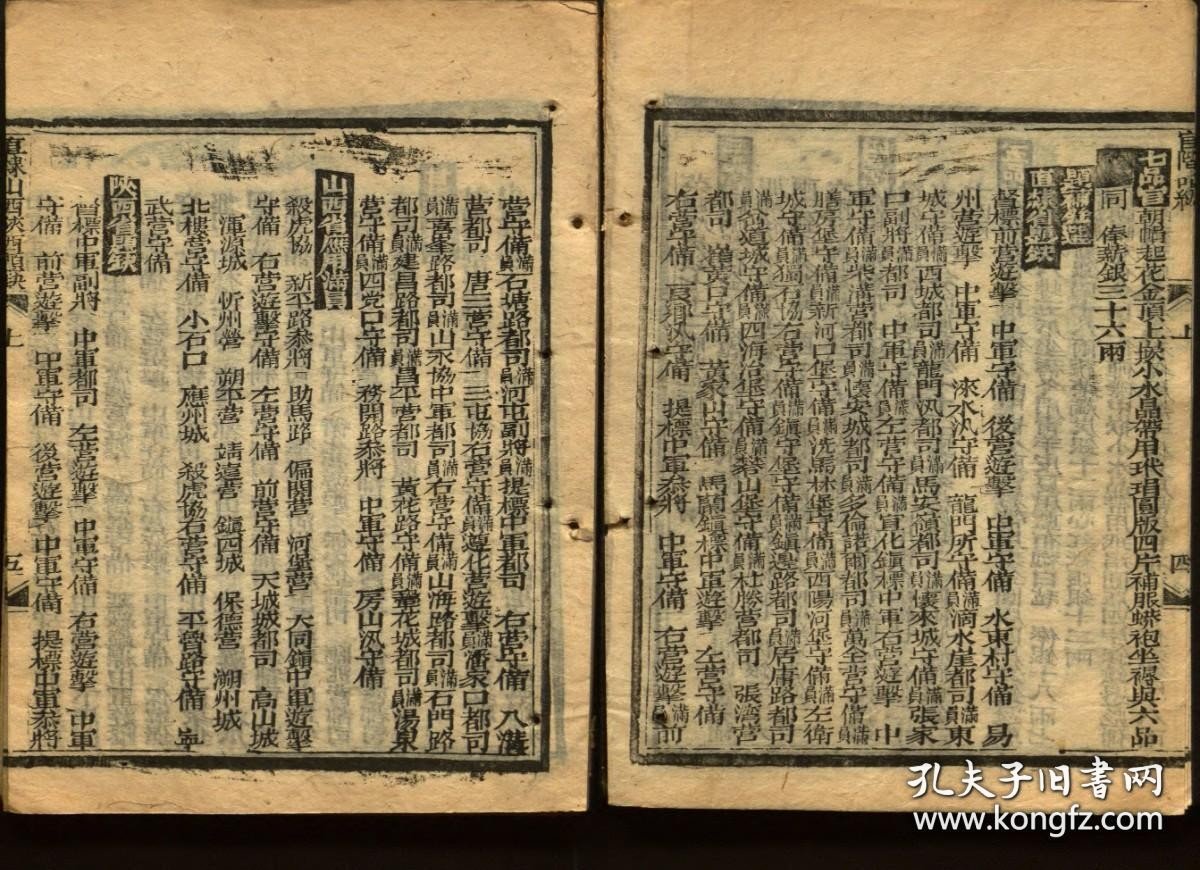 官階品級 上 四
七品官 朝帽起花金頂上嵌小水晶帶用玳瑁圓版四片補服蟒袍坐褥與六品
同 俸薪銀三十六兩
題補推選
直隸省題缺
督標前營遊擊 中軍守備 後營遊擊 中軍守備 水東村守備 易
州營遊擊 中軍守備 淶水汛守備 龍門所守備滿員滴水崖都司滿員東
城守備滿員西城都司滿員龍門汛都司滿員馬安嶺都司滿員懷來城守備滿員張家
口副將滿員 中軍都司 中軍守備滿員左營守備滿員宣化鎮標中軍右營遊擊 中
軍守備滿員柴溝營守備滿員懷安城都司滿員多倫諾爾都司滿員萬全營守備滿員
膳房堡守備滿員新河口堡守備滿員洗馬林堡守備滿員西陽河堡守備滿員左衛
城守備滿員獨石協右營守備滿員鎮守堡守備滿員鎮邊路都司滿員居庸路都司
滿員岔道城守備滿員四海冶堡守備滿員礬山堡守備滿員杜勝營都司 張灣營
都司 黃家山守備 馬蘭鎮標中軍遊擊 左營守備
右營守備 汛守備 提標中軍叅將 中軍守備 右營遊擊滿員前
營守備滿員石塘路都司滿員河屯副將滿員提標中軍都司 右營守備 八溝
營都司 唐三營守備 三屯協右營守備滿員遵化營遊擊滿員潘家口都司
滿員喜峯路都司滿員山永協中軍都司滿員右營守備滿員山海路都司滿員石門路
都司滿員建昌路都司滿員昌平營都司 黃花路守備滿員鞏花城都司滿員湯泉
營守備滿員四党口守備 務關路叅將 中軍守備 房山汛守備
山西省應用滿員
殺虎協 新平路叅將 助馬路 偏關營 河堡營 大同鎮中軍遊擊
守備 右營遊擊守備 左營守備 前營守備 天城城都司 高山城
渾源城 忻州營 朔平營 靖遠營 鎮西城 保德營 朔州城
北樓營守備 小石口 應州城 殺虎協右營守備 平魯路守備 寧
武營守備
陝西省題缺
督標中軍副將 中軍都司 左營遊擊 中軍守備 右營遊擊 中軍
守備 前營遊擊 中軍守備 後營遊擊 中軍守備 提標中軍叅將
直隸山西陝西題缺 上 五
孔夫子旧书网
www.kongfz.com